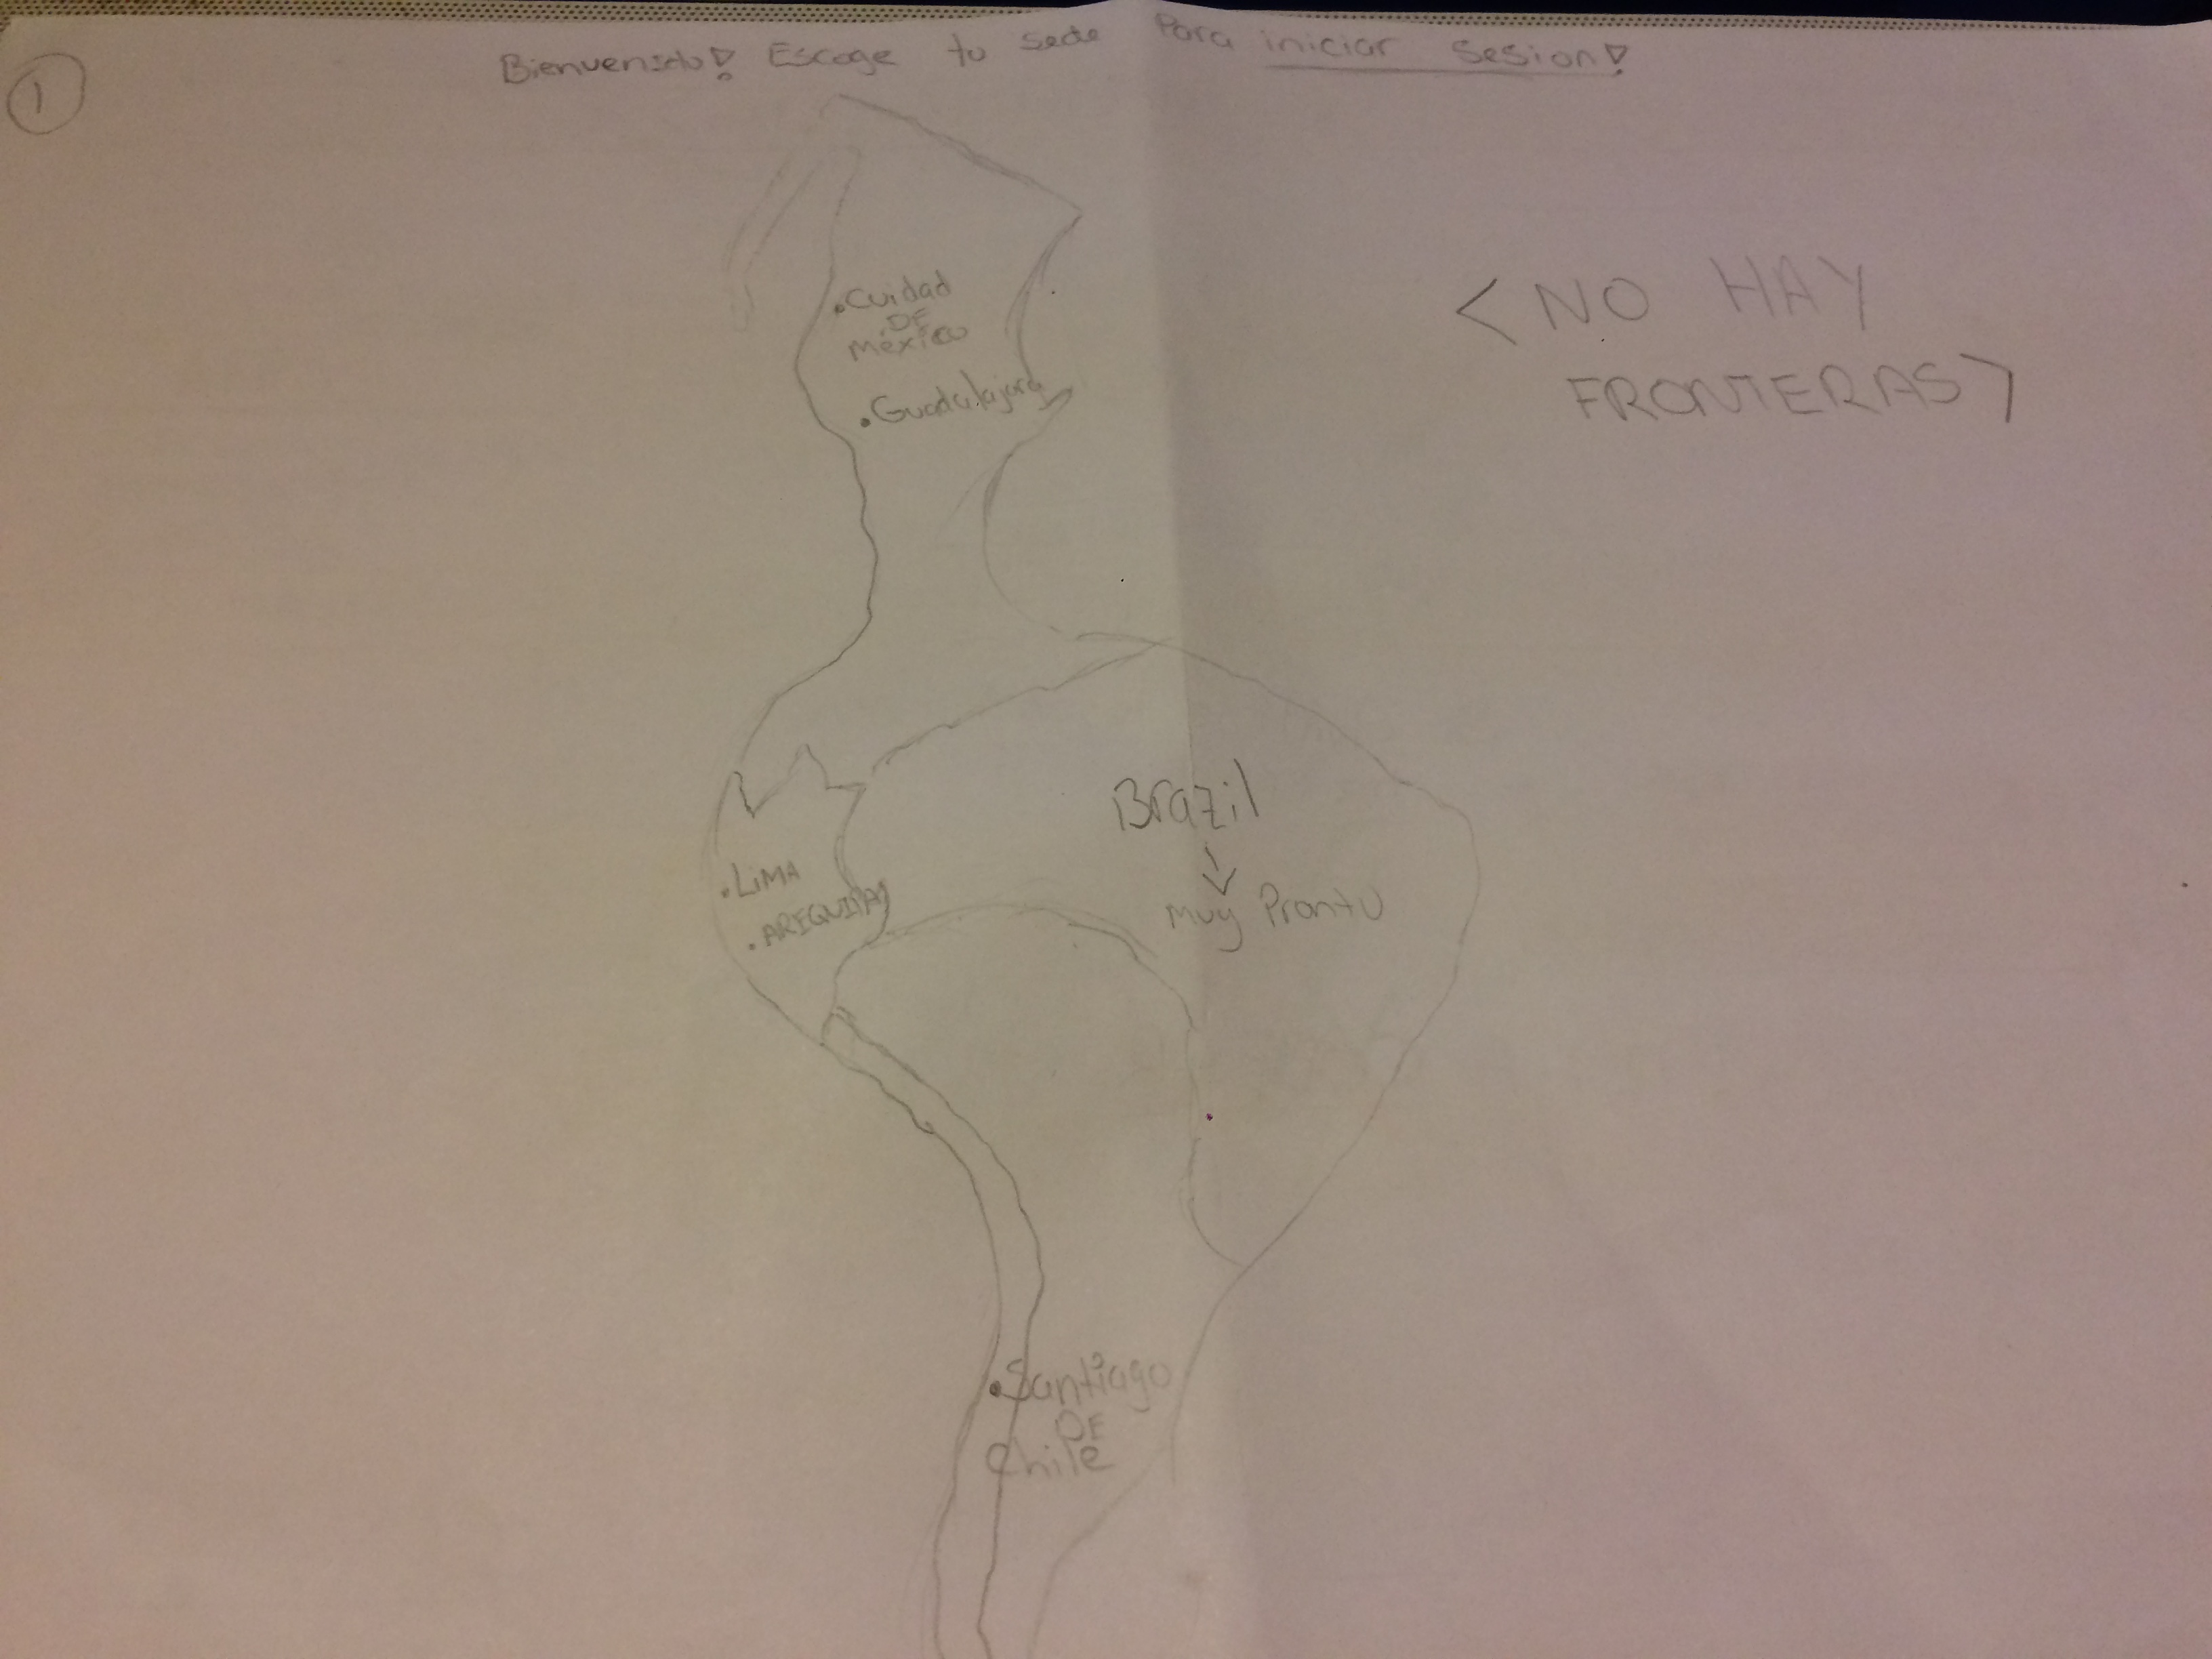 1
Bienvenido! Escoge tu sede Para iniciar Sesion!
<NO HAY
FRONTERAS>
Cuidad
DE
México
Guadalajara
Brazil
Muy Pronto
LIMA
AREQUIPA
Santiago
DE
Chile